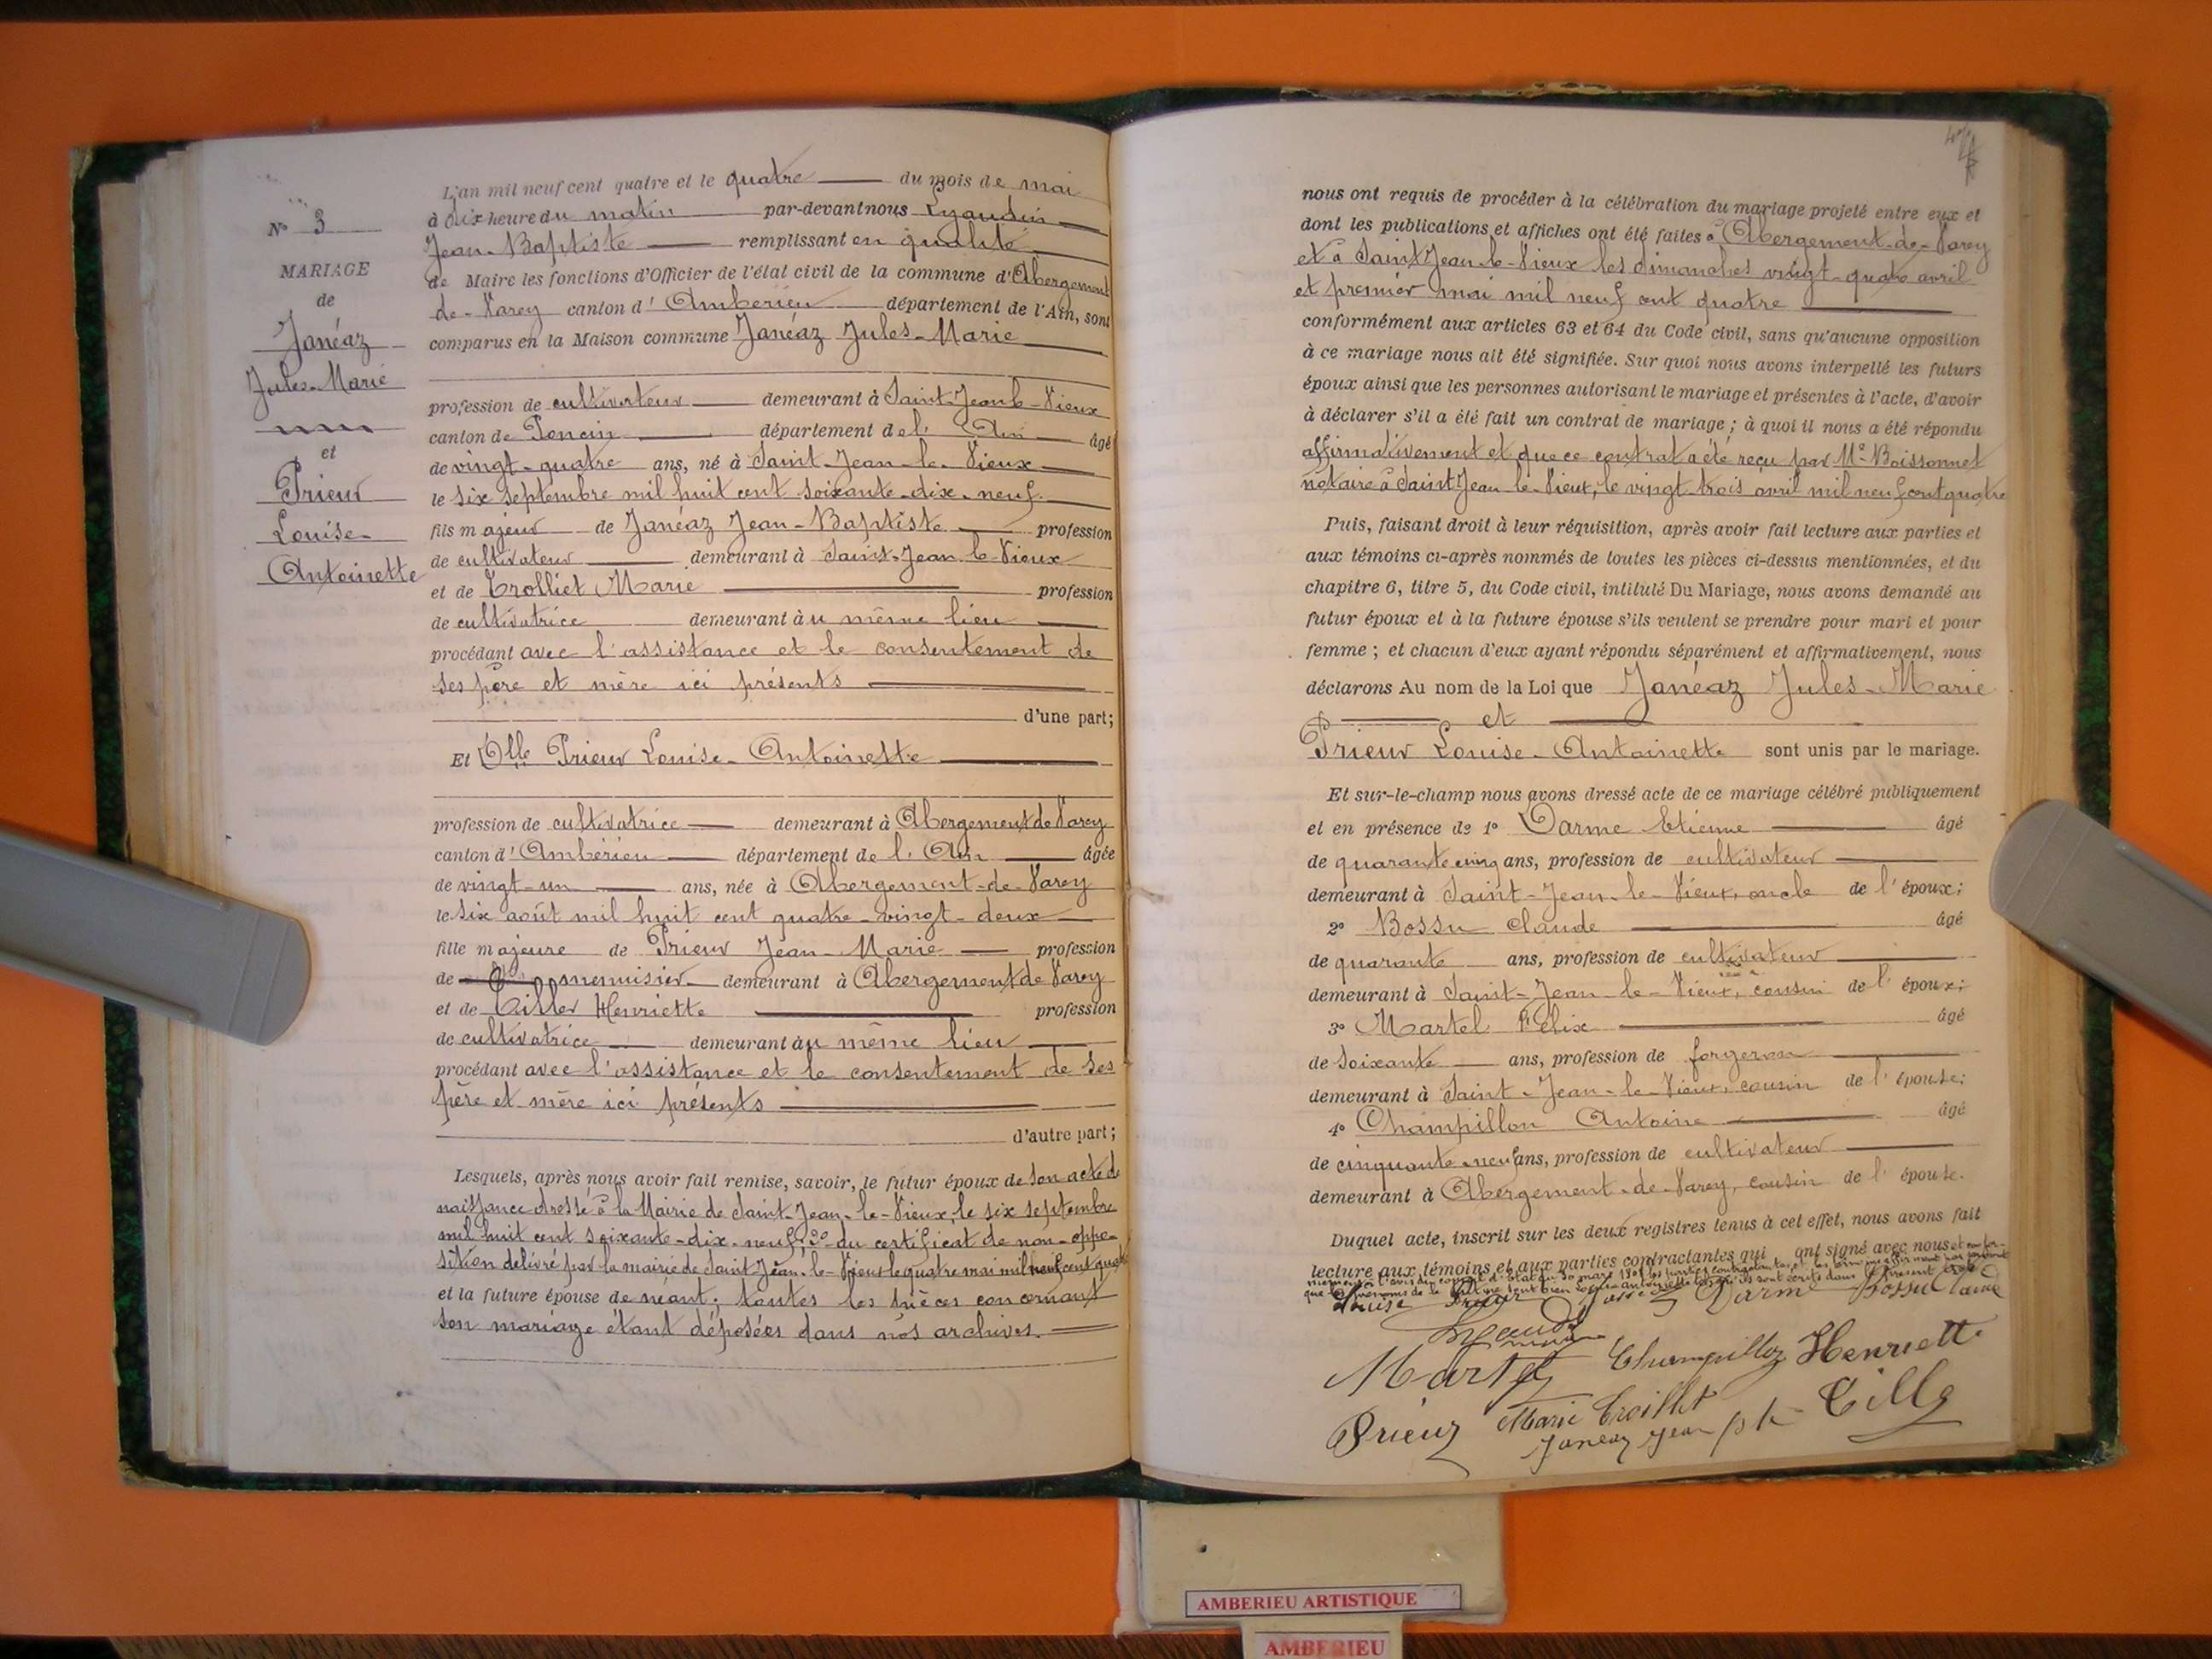 N° 3
MARIAGE
de
Janéaz
Jules-Marie
et
Prieur
Louise-
Antoinette
L'an mil neuf cent quatre et le quatre du mois de mai
à dix heure du matin par-devant nous Lyaudin
Jean-Baptiste remplissant en qualité
de Maire les fonctions d'Officier de l'état civil de la commune d'Abergement
de-Varey canton d'Ambérieu département de l'Ain, sont
comparus en la Maison commune Janéaz Jules-Marie
profession de cultivateur demeurant à Saint-Jean-le-Vieux
canton de Poncin département de l'Ain âgé
de vingt-quatre ans, né à Saint-Jean-le-Vieux
le six septembre mil huit cent soixante-dix-neuf.
fils majeur de Janéaz Jean-Baptiste profession
de cultivateur demeurant à Saint-Jean-le-Vieux
et de Trolliet Marie profession
de cultivatrice demeurant au même lieu
procédant avec l'assistance et le consentement de
ses père et mère ici présents
d'une part;
Et Dlle Prieur Louise-Antoinette
profession de cultivatrice demeurant à Abergement de Varey
canton d'Ambérieu département de l'Ain âgée
de vingt-un ans, née à Abergement-de-Varey
le six août mil huit cent quatre-vingt-deux
fille majeure de Prieur Jean-Marie profession
de menuisier demeurant à Abergement de Varey
et de Tiller Henriette profession
de cultivatrice demeurant au même lieu
procédant avec l'assistance et le consentement de ses
père et mère ici présents
d'autre part;
Lesquels, après nous avoir fait remise, savoir, le futur époux de son acte de
naissance dressé à la Mairie de Saint-Jean-le-Vieux, le six septembre
mil huit cent soixante-dix-neuf; 2° du certificat de non-oppo-
sition délivré par la mairie de Saint Jean-le-Vieux le quatre mai mil neuf cent quatre
et la future épouse de néant; toutes les pièces concernant
son mariage étant déposées dans nos archives.
nous ont requis de procéder à la célébration du mariage projeté entre eux et
dont les publications et affiches ont été faites à Abergement-de-Varey
et à Saint Jean-le-Vieux les dimanches vingt-quatre avril
et premier mai mil neuf cent quatre
conformément aux articles 63 et 64 du Code civil, sans qu'aucune opposition
à ce mariage nous ait été signifiée. Sur quoi nous avons interpellé les futurs
époux ainsi que les personnes autorisant le mariage et présentes à l'acte, d'avoir
à déclarer s'il a été fait un contrat de mariage; à quoi il nous a été répondu
affirmativement et que ce contrat a été reçu par Me Boissonnet
notaire à Saint Jean-le-Vieux, le vingt-trois avril mil neuf cent quatre
Puis, faisant droit à leur réquisition, après avoir fait lecture aux parties et
aux témoins ci-après nommés de toutes les pièces ci-dessus mentionnées, et du
chapitre 6, titre 5, du Code civil, intitulé Du Mariage, nous avons demandé au
futur époux et à la future épouse s'ils veulent se prendre pour mari et pour
femme; et chacun d'eux ayant répondu séparément et affirmativement, nous
déclarons Au nom de la Loi que Janéaz Jules-Marie
et
Prieur Louise-Antoinette sont unis par le mariage.
Et sur-le-champ nous avons dressé acte de ce mariage célébré publiquement
et en présence de 1° Darme Etienne âgé
de quarante cinq ans, profession de cultivateur
demeurant à Saint-Jean-le-Vieux, oncle de l'époux;
2° Bossu Claude âgé
de quarante ans, profession de cultivateur
demeurant à Saint-Jean-le-Vieux, cousin de l'époux;
3° Martel Félix âgé
de soixante ans, profession de forgeron
demeurant à Saint-Jean-le-Vieux, cousin de l'épouse;
4° Champillon Antoine âgé
de cinquante-neuf ans, profession de cultivateur
demeurant à Abergement-de-Varey, cousin de l'épouse.
Duquel acte, inscrit sur les deux registres tenus à cet effet, nous avons fait
lecture aux témoins et aux parties contractantes qui ont signé avec nous et confor-
mément à l'avis du conseil d'Etat du 30 mars 1808 les parties contractantes et les témoins affirment par serment
que les prénoms de la sont bien Louise Antoinette qu'ils sont écrits dans le présent acte
Louise Prieur Darme Bossu Claude
Lyaudin
Martel Champilloz Henriette
Prieur Marie Troillet Tille
Janeaz Jean pte
AMBERIEU ARTISTIQUE
AMBERIEU